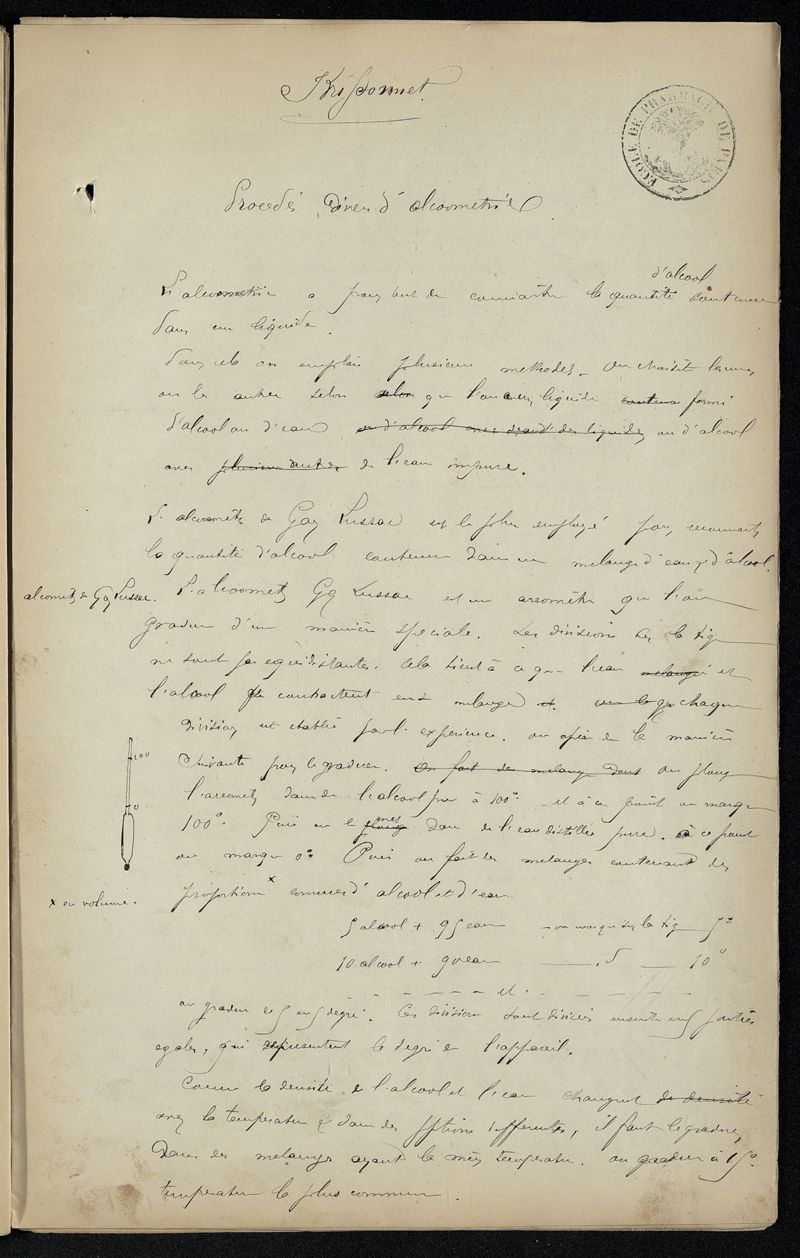 Krissonnet
ECOLE DE PHARMACIE DE PARIS
Procédés divers d'alcoométrie
d'alcool
L'alcoométrie a pour but de connaître la quantité contenue
dans un liquide.
Pour cela on emploie plusieurs méthodes. On choisit les unes
ou les autres selon selon que l'on a un liquide contenu formé
d'alcool ou d'eau ou d'alcool avec des liquides ou d'alcool
avec plusieurs autres de l'eau impure.
L'alcoomètre de Gay Lussac est le plus employé pour reconnaître
la quantité d'alcool contenue dans un mélange d'eau et d'alcool.
alcoomètre de Gay Lussac.
L'alcoomètre Gay Lussac est un aréomètre que l'on
gradue d'une manière spéciale. Les divisions sur la tige
ne sont pas équidistantes. Cela tient à ce que l'eau mélangé et
l'alcool se contractent en se mélangeant et chaque
division est établie par l'expérience. on opère de la manière
suivante pour le graduer. On fait des mélanges dans on plonge
l'aréomètre dans de l'alcool pur à 100° et à ce point on marque
100
0
100° Puis on le plonge met dans de l'eau distillée pure. à ce point
on marque 0° Puis on fait des mélanges contenant des
proportions x connues d'alcool et d'eau
x en volume.
5 alcool + 95 eau — on marque sur la tige 5°
10 alcool + 90 eau — id — 10°
– – – – – – et – – – –
on gradue de 5 en 5 degrés. Ces divisions sont divisées ensuite en 5 parties
égales, qui représentent le degré de l'appareil.
Comme la densité de l'alcool et l'eau changent de densité
avec la température et dans des pptions différentes, il faut le graduer
dans des mélanges ayant la même température. on gradue à 15°
température la plus commune.